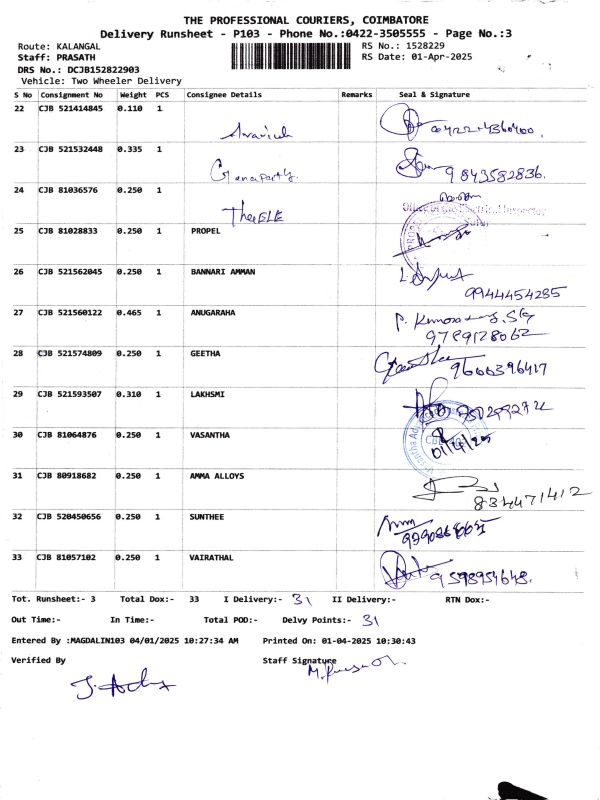 THE PROFESSIONAL COURIERS, COIMBATORE
Delivery Runsheet - P103 - Phone No.:0422-3505555 - Page No.:3
Route: KALANGAL
RS No.: 1528229
Staff: PRASATH
RS Date: 01-Apr-2025
DRS No.: DCJB152822903
Vehicle: Two Wheeler Delivery
S No Consignment No Weight PCS Consignee Details Remarks Seal & Signature
22 CJB 521414845 0.110 1
23 CJB 521532448 0.335 1
9843582836.
24 CJB 81036576 0.250 1
25 CJB 81028833 0.250 1 PROPEL
26 CJB 521562045 0.250 1 BANNARI AMMAN
9944454235
27 CJB 521560122 0.465 1 ANUGARAHA
9789128062
28 CJB 521574809 0.250 1 GEETHA
9666396417
29 CJB 521593507 0.310 1 LAKHSMI
30 CJB 81064876 0.250 1 VASANTHA
01/4/25
31 CJB 80918682 0.250 1 AMMA ALLOYS
834471412
32 CJB 520450656 0.250 1 SUNTHEE
33 CJB 81057102 0.250 1 VAIRATHAL
9598954648.
Tot. Runsheet:- 3 Total Dox:- 33 I Delivery:- 31 II Delivery:- RTN Dox:-
Out Time:- In Time:- Total POD:- Delvy Points:- 31
Entered By :MAGDALIN103 04/01/2025 10:27:34 AM Printed On: 01-04-2025 10:30:43
Verified By Staff Signature